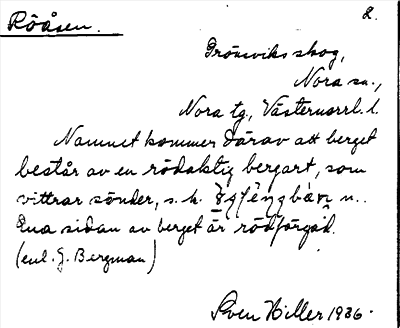 Rödåsen. 2.
Grönsviks skog,
Nora sn.,
Nora tg., Västernorrl. l.
Namnet kommer därav att berget
består av en rödaktig bergart, som
vittrar sönder, s.k. n..
Ena sidan av berget är rödfärgad.
(enl. G. Bergman)
Sven Hiller 1936.